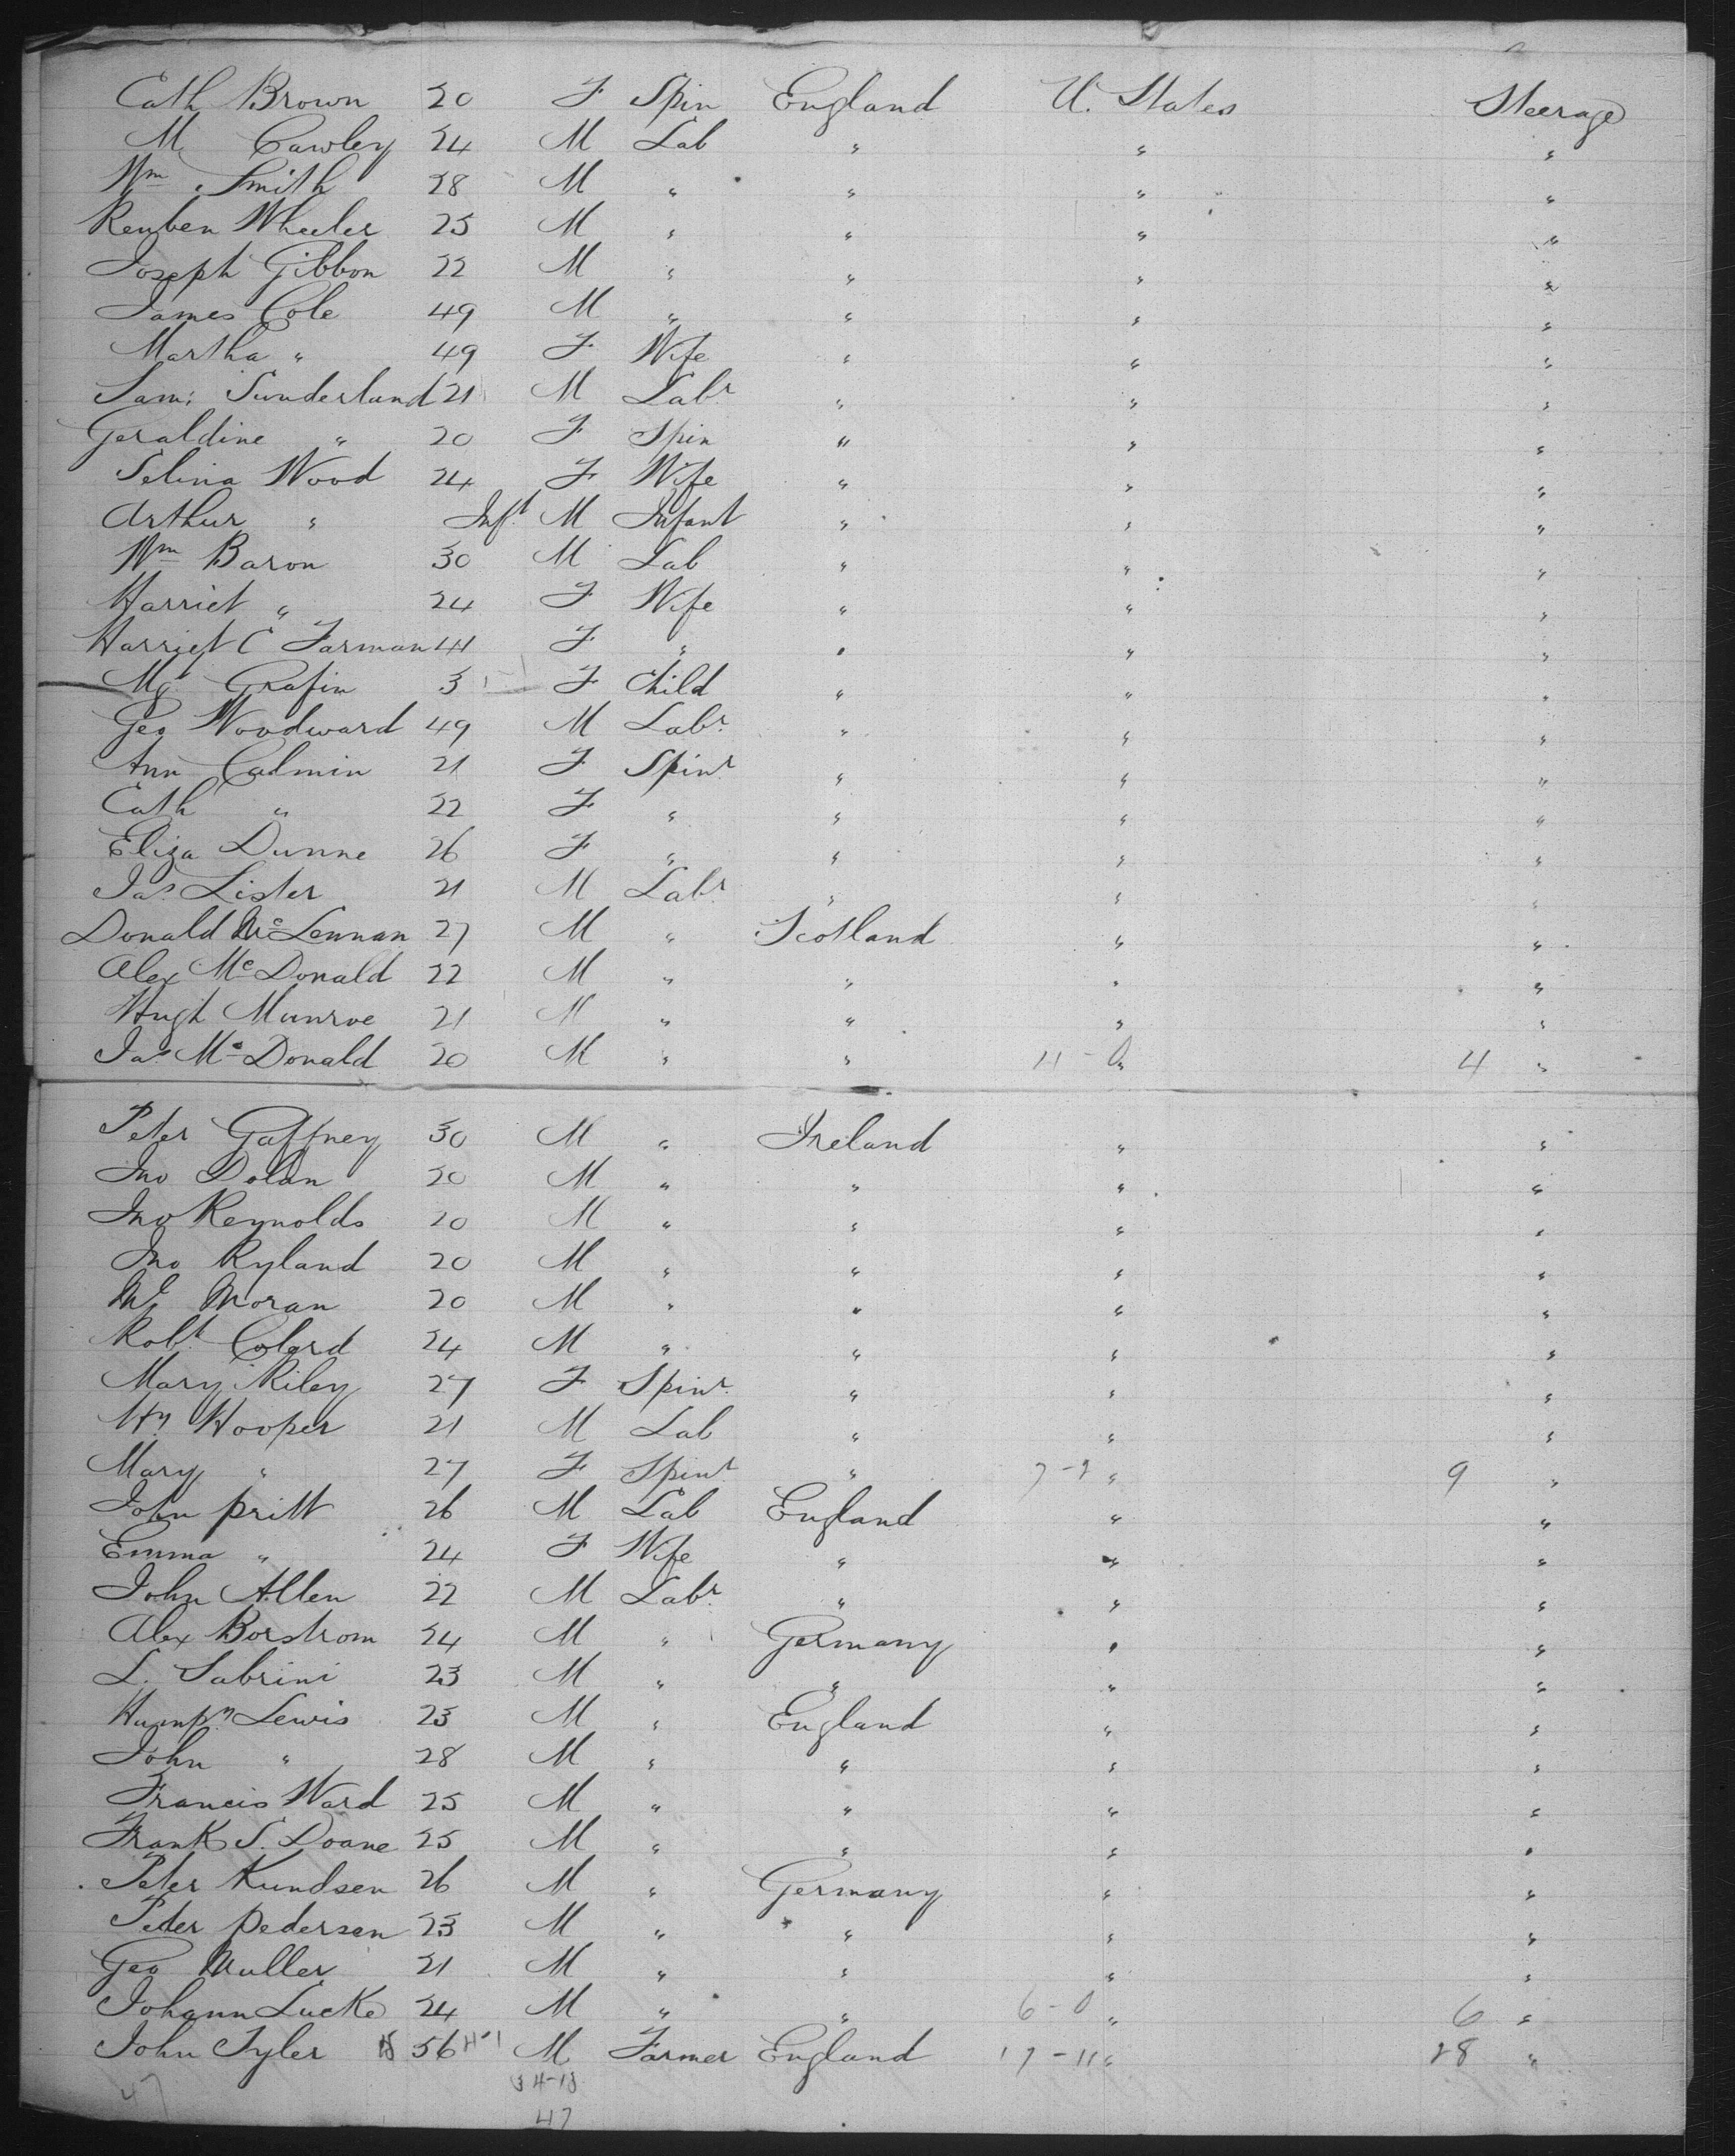 Cath Brown 20 F Spin England U. States Steerage
M Cawley 24 M Lab " " "
Wm Smith 28 M " " " "
Reuben Wheeler 25 M " " " "
Joseph Gibbon 22 M " " " "
James Cole 49 M " " " "
Martha " 49 F Wife " " "
Saml Sunderland 21 M Labr " " "
Geraldine " 20 F Spin " " "
Selina Wood 24 F Wife " " "
Arthur " Inft M Infant " " "
Wm Baron 30 M Lab " " "
Harriet " 24 F Wife " " "
Harriet C Farman 41 F " " " "
Mg Grafin 3 F Child " " "
Geo Woodward 49 M Labr " " "
Ann Calmin 21 F Spinr " " "
Cath " 22 F " " " "
Eliza Dunne 26 F " " " "
Jas Lister 21 M Labr " " "
Donald McLennan 27 M " Scotland " "
Alex McDonald 22 M " " " "
Hugh Munroe 21 M " " " "
Jas McDonald 20 M " " 11-0 " 4 "
Peter Gaffney 30 M " Ireland " "
Jno Dolan 20 M " " " "
Jno Reynolds 20 M " " " "
Jno Ryland 20 M " " " "
Ml Moran 20 M " " " "
Robt Colard 24 M " " " "
Mary Riley 27 F Spinr " " "
Hy Hooper 21 M Lab " " "
Mary " 27 F Spinr " 7-2 " 9 "
John Pritt 26 M Lab England " "
Emma " 24 F Wife " " "
John Allen 22 M Labr " " "
Alex Borstrom 24 M " Germany " "
L. Sabrini 23 M " " " "
Humpy Lewis 23 M " England " "
John " 28 M " " " "
Francis Ward 25 M " " " "
Frank S. Doane 25 M " " " "
Peter Kundsen 26 M " Germany " "
Peter Pedersen 23 M " " " "
Geo Muller 21 M " " " "
Johann Lucke 24 M " " 6-0 " 6 "
John Tyler 56 H-1 M Farmer England 17-11 " 28 "
47 34-13
47